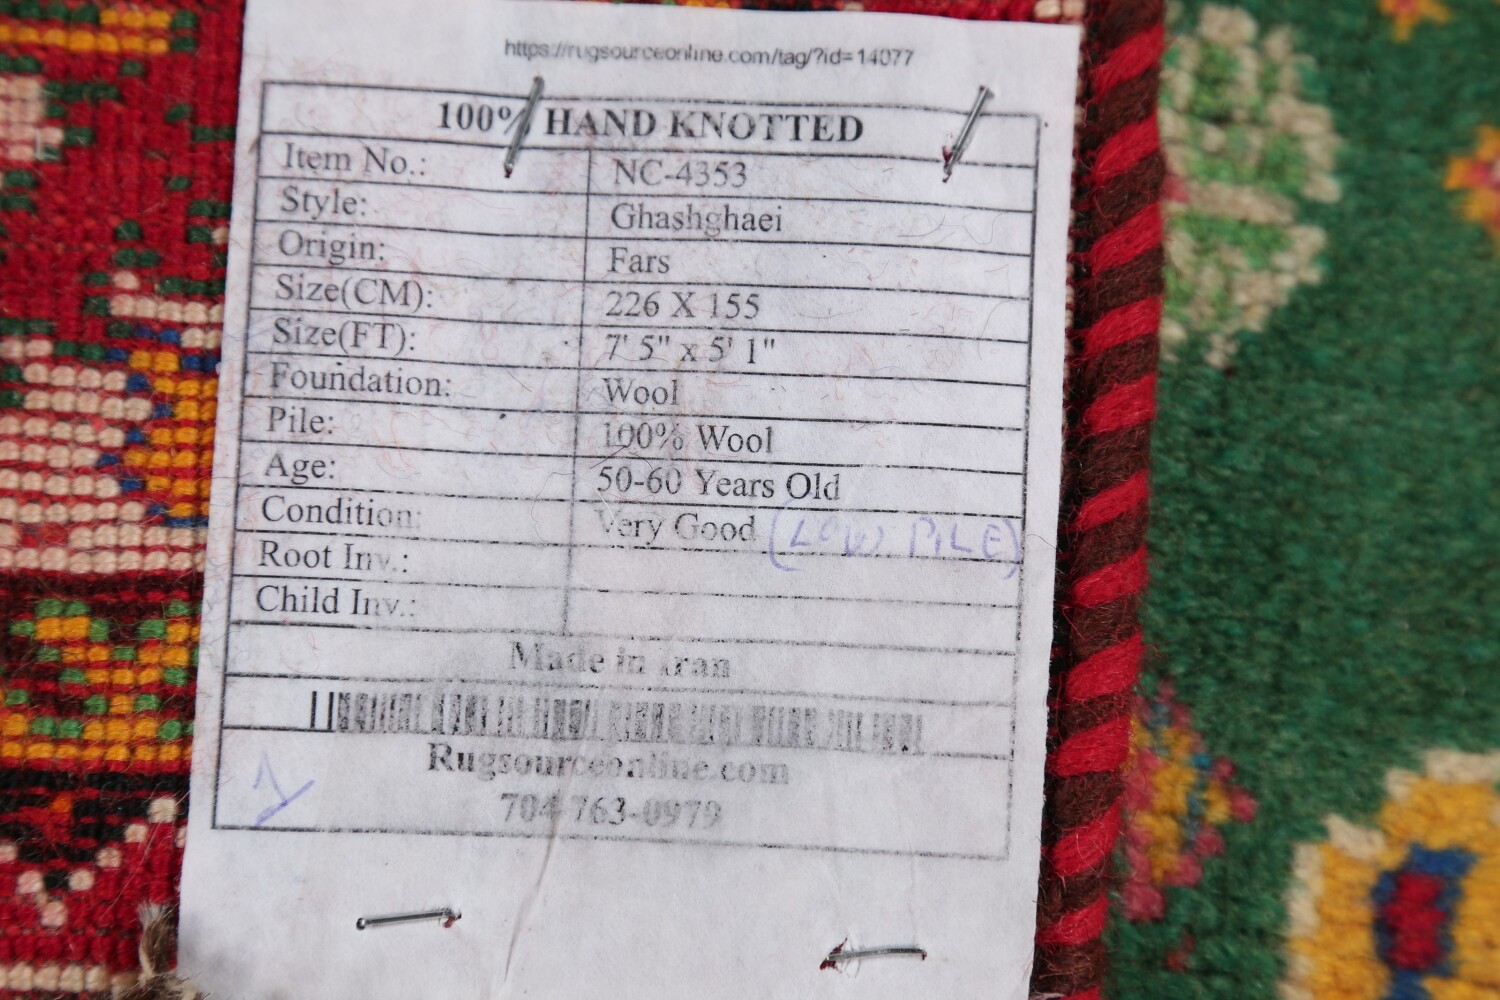 https://rugsourceonline.com/tag/?id=14077
100% HAND KNOTTED
Item No.: NC-4353
Style: Ghashghaei
Origin: Fars
Size(CM): 226 X 155
Size(FT): 7' 5" x 5' 1"
Foundation: Wool
Pile: 100% Wool
Age: 50-60 Years Old
Condition: Very Good (LOW PILE)
Root Inv.:
Child Inv.:
Made in Iran
Rugsourceonline.com
704 763-0979